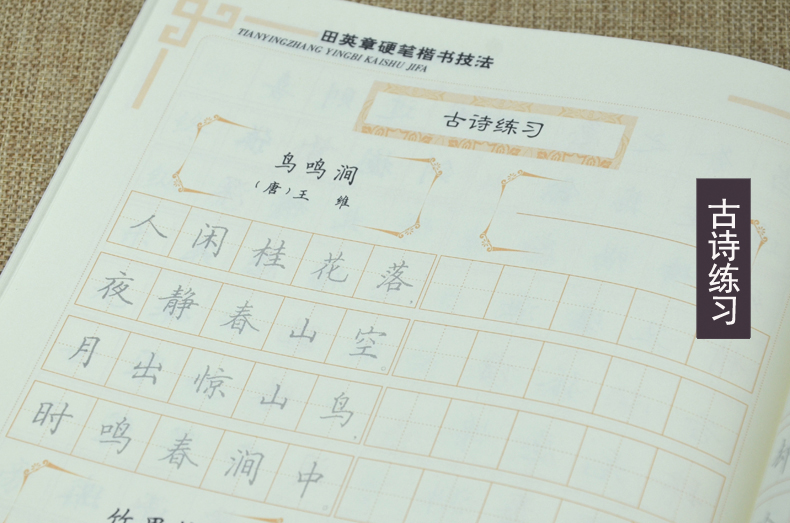 田英章硬笔楷书技法
TIANYINGZHANG YINGBI KAISHU JIFA
古诗练习
鸟鸣涧
（唐）王 维
人闲桂花落，
夜静春山空。
月出惊山鸟，
时鸣春涧中。
古诗练习